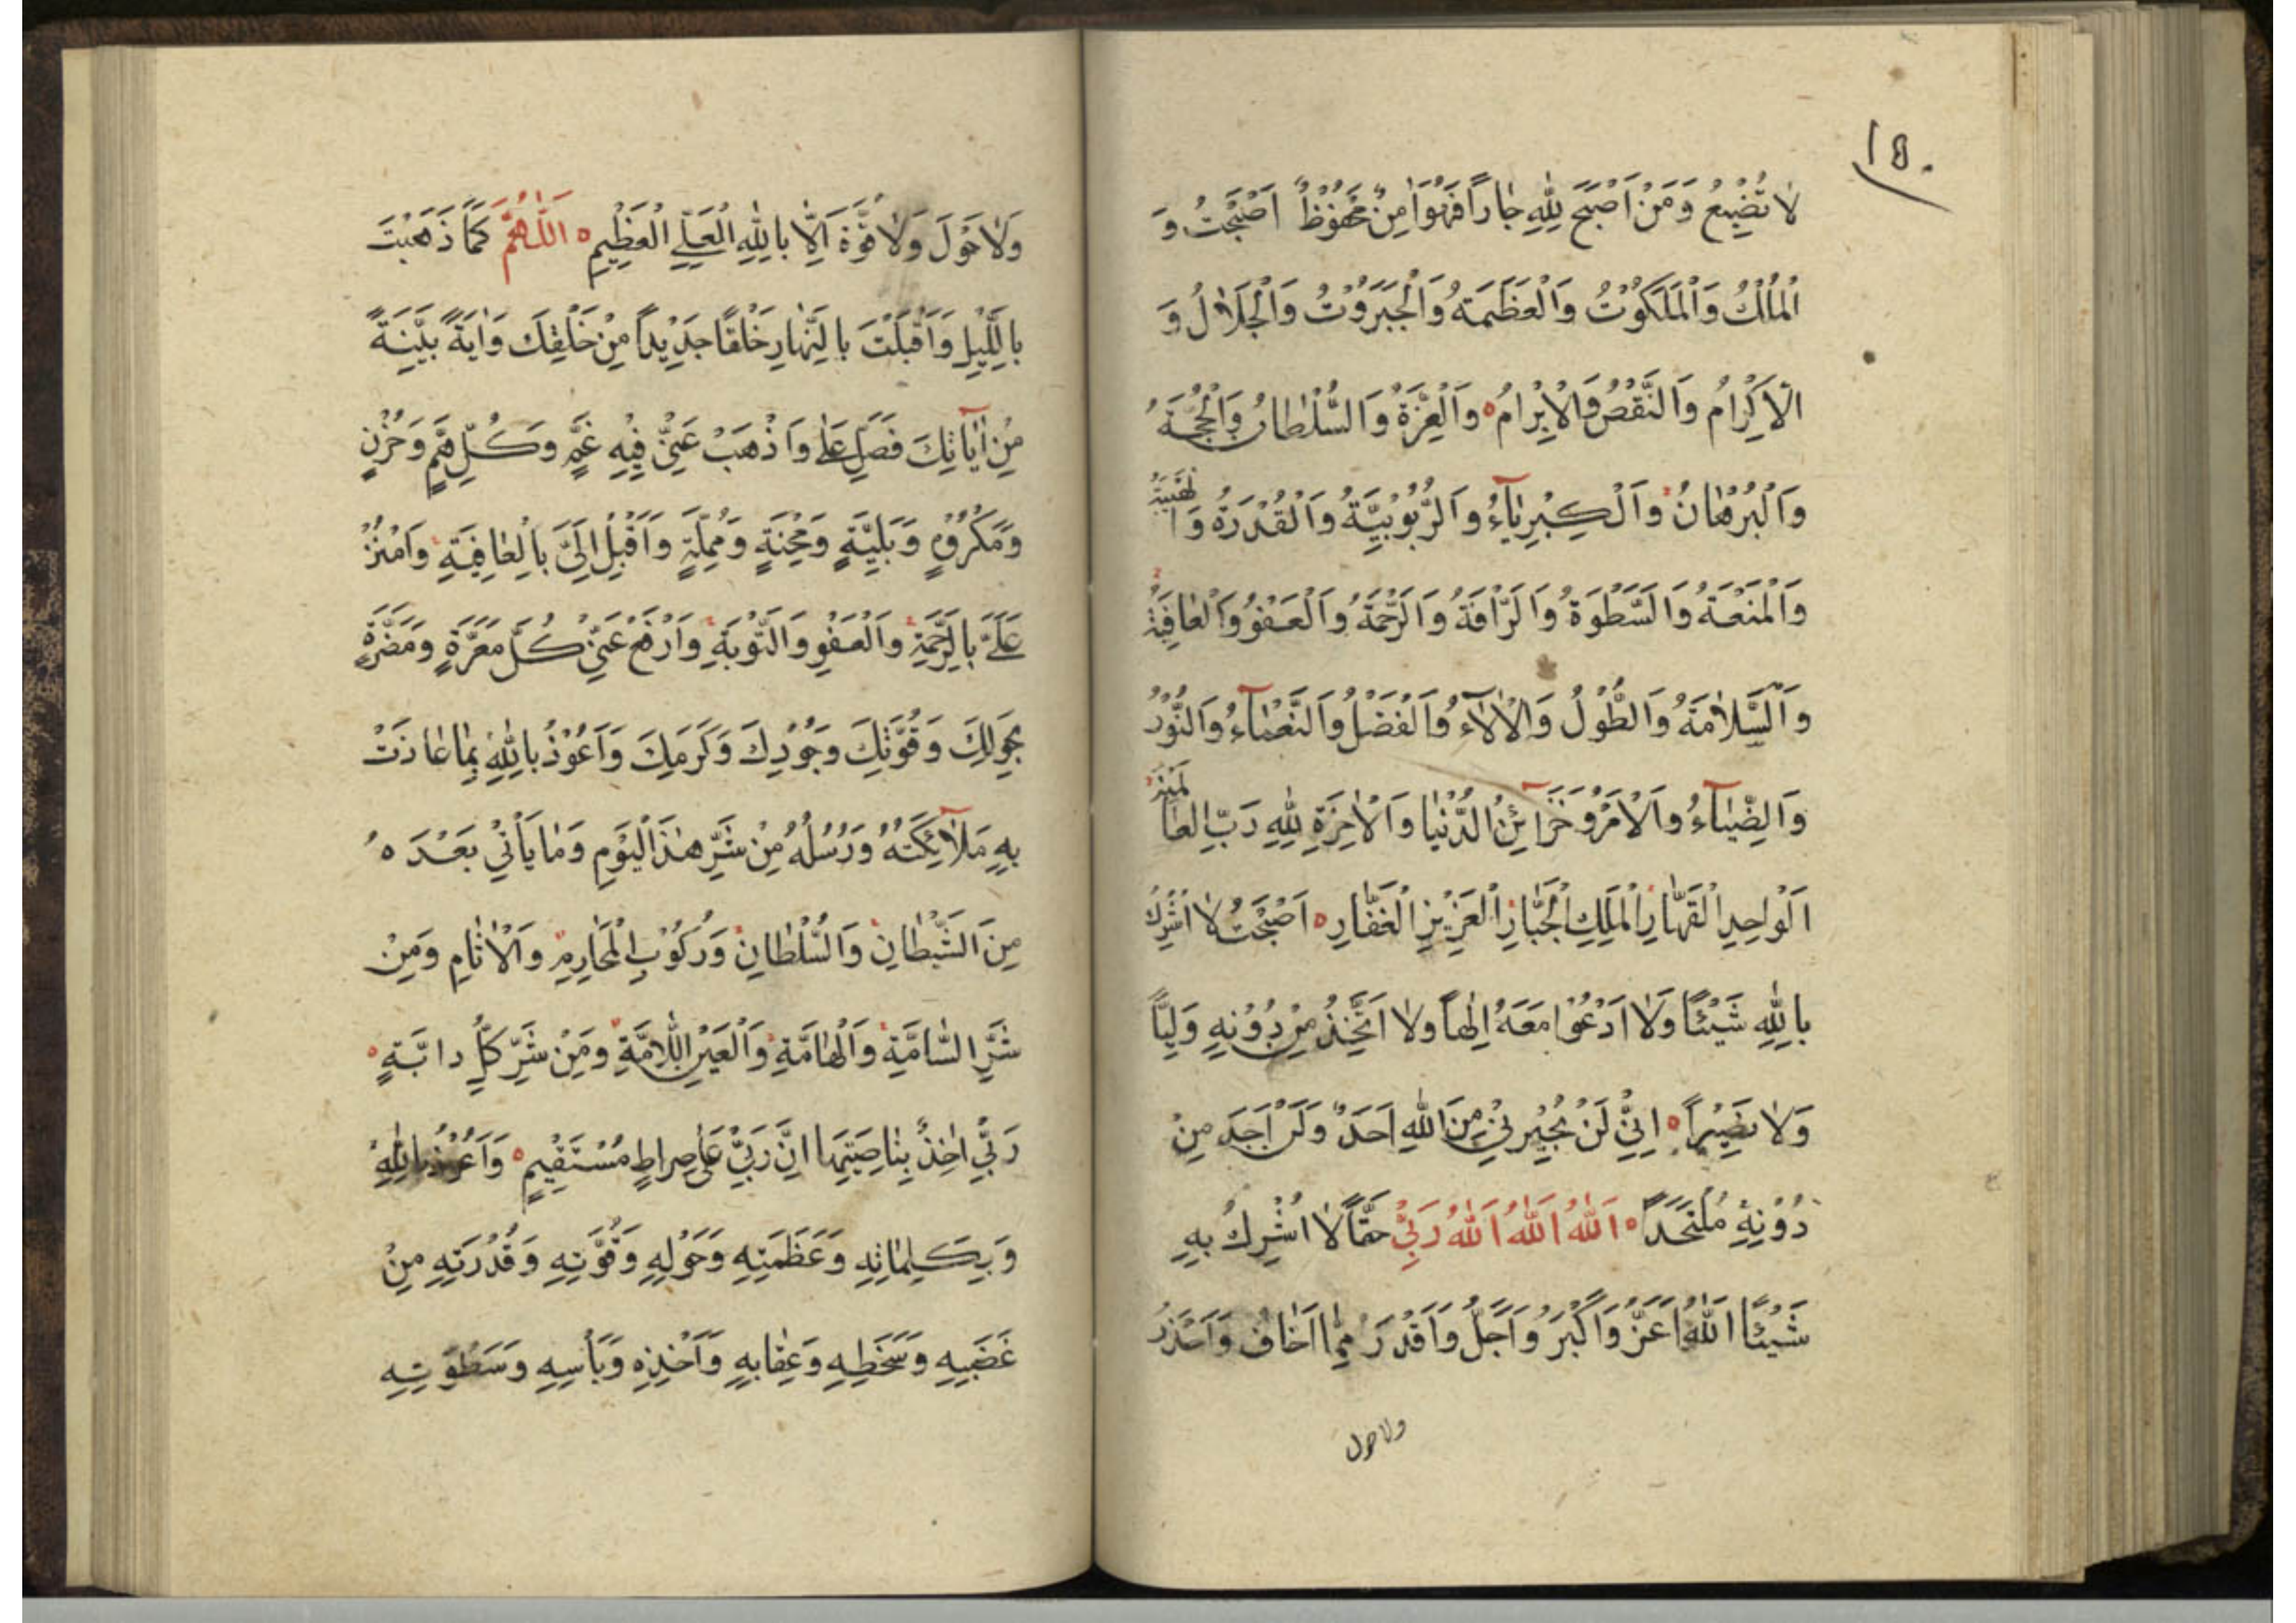 ١٥٠
لَا تُضِيعُ وَمَنْ أَصْبَحَ لِلّٰهِ جَاراً فَهُوَ اٰمِنٌ مَحْفُوظٌ اَصْبَحْتُ وَ
الْمُلْكُ وَالْمَلَكُوتُ وَالْعَظَمَةُ وَالْجَبَرُوتُ وَالْجَلَالُ وَ
الْاِكْرَامُ وَالنَّقْضُ وَالْاِبْرَامُ ه وَالْعِزَّةُ وَالسُّلْطَانُ وَالْحُجَّةُ
وَالْبُرْهَانُ وَالْكِبْرِيَآءُ وَالرُّبُوبِيَّةُ وَالْقُدْرَةُ وَالْهَيْبَةُ
وَالْمَنَعَةُ وَالسَّطْوَةُ وَالرَّأْفَةُ وَالرَّحْمَةُ وَالْعَفْوُ وَالْعَافِيَةُ
وَالسَّلَامَةُ وَالطَّوْلُ وَالْاٰلَآءُ وَالْفَضْلُ وَالنَّعْمَآءُ وَالنُّورُ
وَالضِّيَآءُ وَالْاَمْرُ وَخَزَآئِنُ الدُّنْيَا وَالْاٰخِرَةِ لِلّٰهِ رَبِّ الْعَالَمِينَ
الْوَاحِدِ الْقَهَّارِ الْمَلِكِ الْجَبَّارِ الْعَزِيزِ الْغَفَّارِ ه اَصْبَحْتُ لَا اُشْرِكُ
بِاللّٰهِ شَيْئًا وَلَا اَدْعُوا مَعَهُ اِلٰهاً وَلَا اَتَّخِذُ مِنْ دُونِهِ وَلِيًّا
وَلَا نَصِيراً ه اِنِّي لَنْ يُجِيرَنِي مِنَ اللّٰهِ اَحَدٌ وَلَنْ اَجِدَ مِنْ
دُونِهِ مُلْتَحَداً ه اَللّٰهُ اَللّٰهُ اَللّٰهُ رَبِّي حَقًّا لَا اُشْرِكُ بِهِ
شَيْئًا اَللّٰهُ اَعَزُّ وَاَكْبَرُ وَاَجَلُّ وَاَقْدَرُ مِمَّا اَخَافُ وَاَحْذَرُ
ولا حول
وَلَا حَوْلَ وَلَا قُوَّةَ اِلَّا بِاللّٰهِ الْعَلِيِّ الْعَظِيمِ ه اَللّٰهُمَّ كَمَا ذَهَبْتَ
بِاللَّيْلِ وَاَقْبَلْتَ بِالنَّهَارِ خَلْقًا جَدِيداً مِنْ خَلْقِكَ وَاٰيَةً بَيِّنَةً
مِنْ اٰيَاتِكَ فَصَلِّ عَلٰى وَاَذْهِبْ عَنِّي فِيهِ غَمٍّ وَكُلَّ هَمٍّ وَحُزْنٍ
وَمَكْرُوهٍ وَبَلِيَّةٍ وَمِحْنَةٍ وَمُلِمَّةٍ وَاَقْبِلْ اِلَيَّ بِالْعَافِيَةِ وَامْنُنْ
عَلَيَّ بِالرَّحْمَةِ وَالْعَفْوِ وَالتَّوْبَةِ وَادْفَعْ عَنِّي كُلَّ مَعَرَّةٍ وَمَضَرَّةٍ
بِحَوْلِكَ وَقُوَّتِكَ وَجُودِكَ وَكَرَمِكَ وَاَعُوذُ بِاللّٰهِ بِمَا عَاذَتْ
بِهِ مَلَآئِكَتُهُ وَرُسُلُهُ مِنْ شَرِّ هٰذَا الْيَوْمِ وَمَا يَأْتِي بَعْدَهُ
مِنَ الشَّيْطَانِ وَالسُّلْطَانِ وَرُكُوبِ الْمَحَارِمِ وَالْاٰثَامِ وَمِنْ
شَرِّ السَّامَّةِ وَالْهَامَّةِ وَالْعَيْنِ اللَّامَّةِ وَمِنْ شَرِّ كُلِّ دَابَّةٍ
رَبِّي اٰخِذٌ بِنَاصِيَتِهَا اِنَّ رَبِّي عَلٰى صِرَاطٍ مُسْتَقِيمٍ ه وَاَعُوذُ بِاللّٰهِ
وَبِكَلِمَاتِهِ وَعَظَمَتِهِ وَحَوْلِهِ وَقُوَّتِهِ وَقُدْرَتِهِ مِنْ
غَضَبِهِ وَسَخَطِهِ وَعِقَابِهِ وَاَخْذِهِ وَبَأْسِهِ وَسَطْوَتِهِ